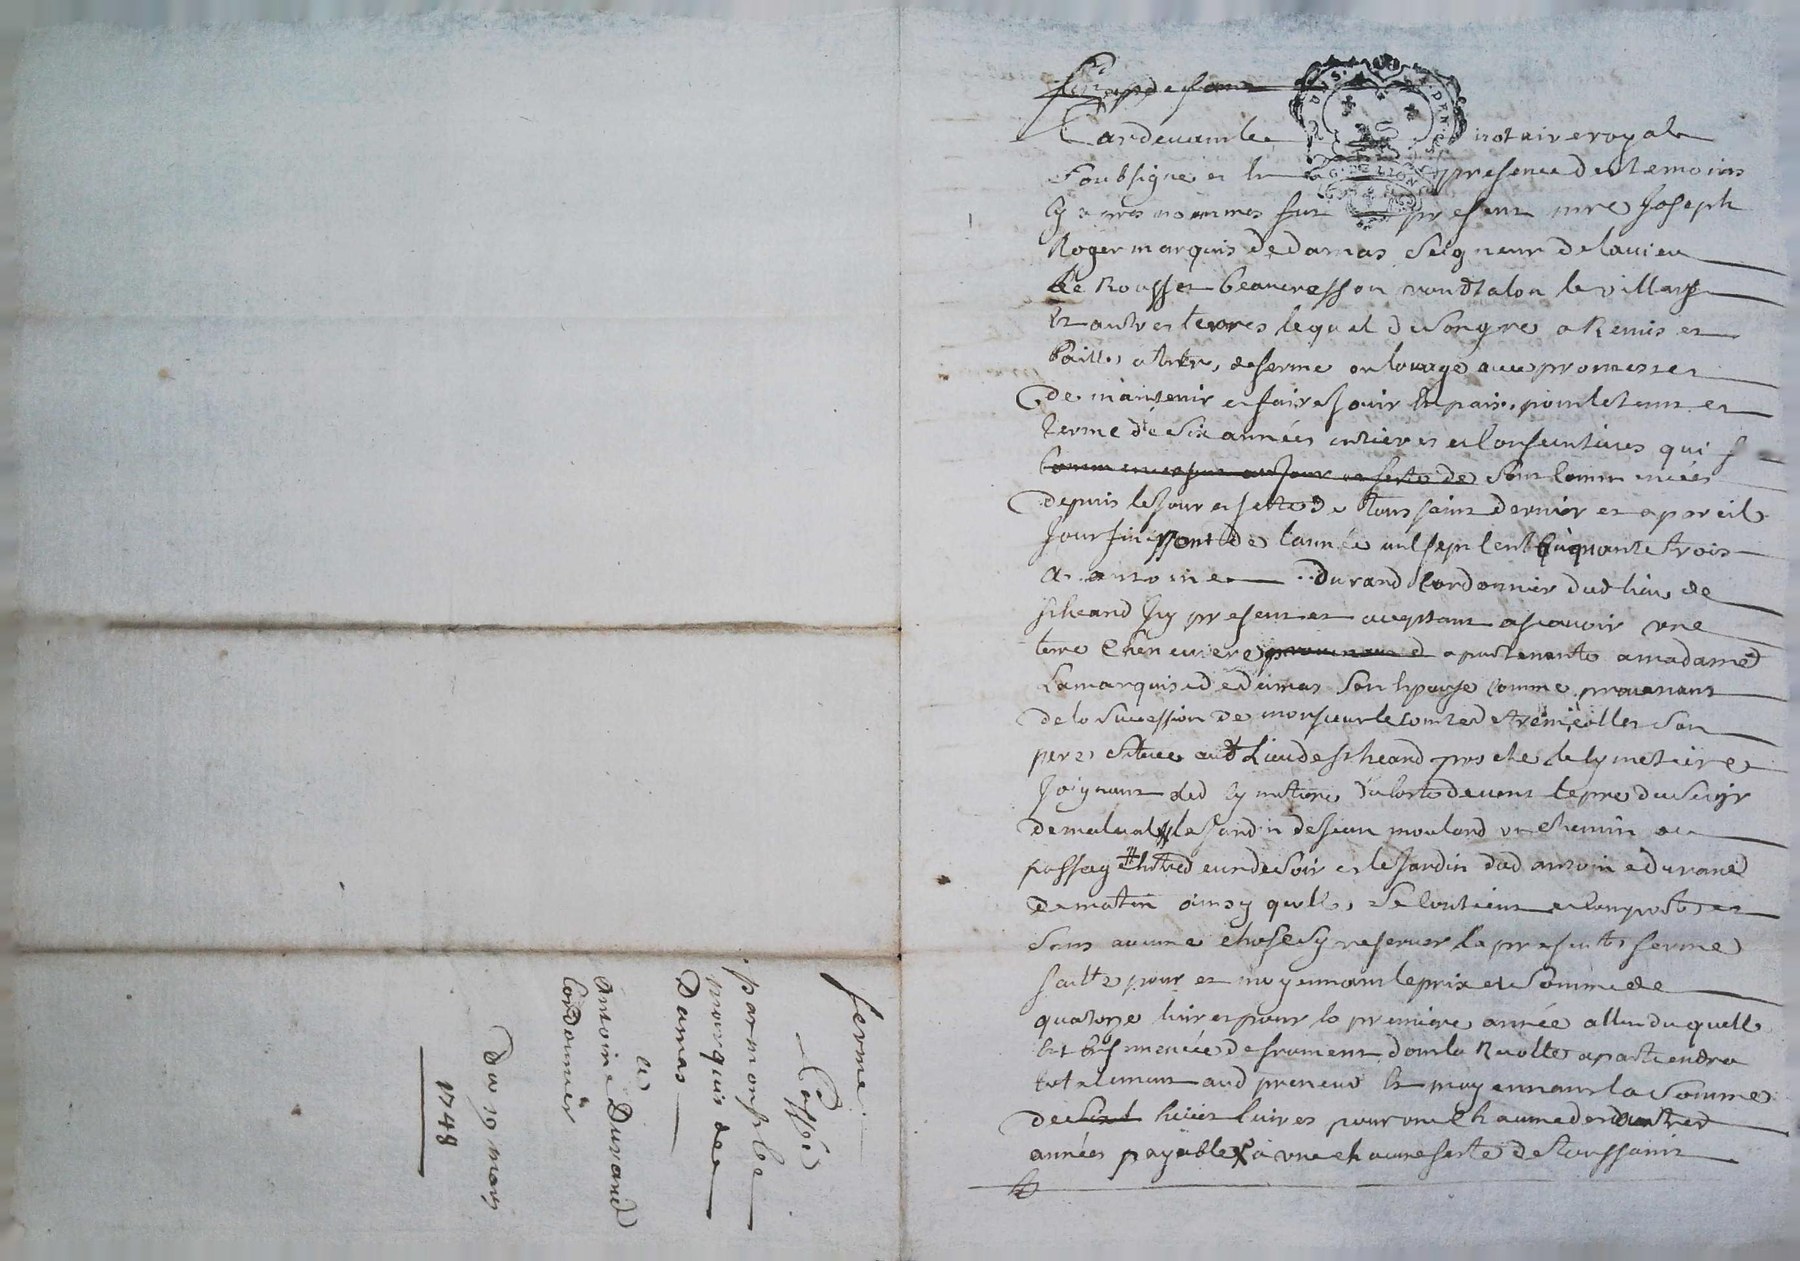 ferme
Passé
par monsr le
marquis de
Damas
a
antoine Durand
Cordonnier
Du 19 mars
1748
Pardevant le notaire royal
soubsigne et en presence des temoins
cy apres nommes fut present mre Joseph
Roger marquis de damas Seigneur de lavieu
Le Rousset beaucresson rontalon le villars
Et autres terres lequel de son gre a Remis et
Baillé a titre, de ferme ou louage avec promesse
de maintenir et faire Jouir En paix, pour le tems et
terme de six années entieres et Consecutives qui
commenceront au Jour et feste de sont commencées
depuis le Jour et feste de toussaint dernier et a pareil
Jour finiront de l'année mil sept Cent Cinquante trois
A antoine Durand Cordonnier dud lieu de
st heand Icy present et acceptant ascavoir une
terre Cheneviere provenant apartenante a madame
La marquise de damas Son Epouse comme provenant
de la sucession de monsieur le comte de tremeolles Son
pere, située aud Lieu de st heand proche le cymetiere
Joignant led Cymetiere le pre du Sieur
de malval le Jardin de Jean moulard un chemin ou
passage de soir et le Jardin dud antoine durand
de matin ainsy quelle, se contient et comporte et
sans aucune chose sy reserver la presente ferme
faitte pour et moyennant le prix et somme de
quatorze livres pour la premiere année attendu quelle
Est Ensemencée de froment dont la Recolte apartiendra
totalement aud preneur Et moyennant la somme
de huit livres pour une chacune des autres
années payable a une chacune feste de toussaint